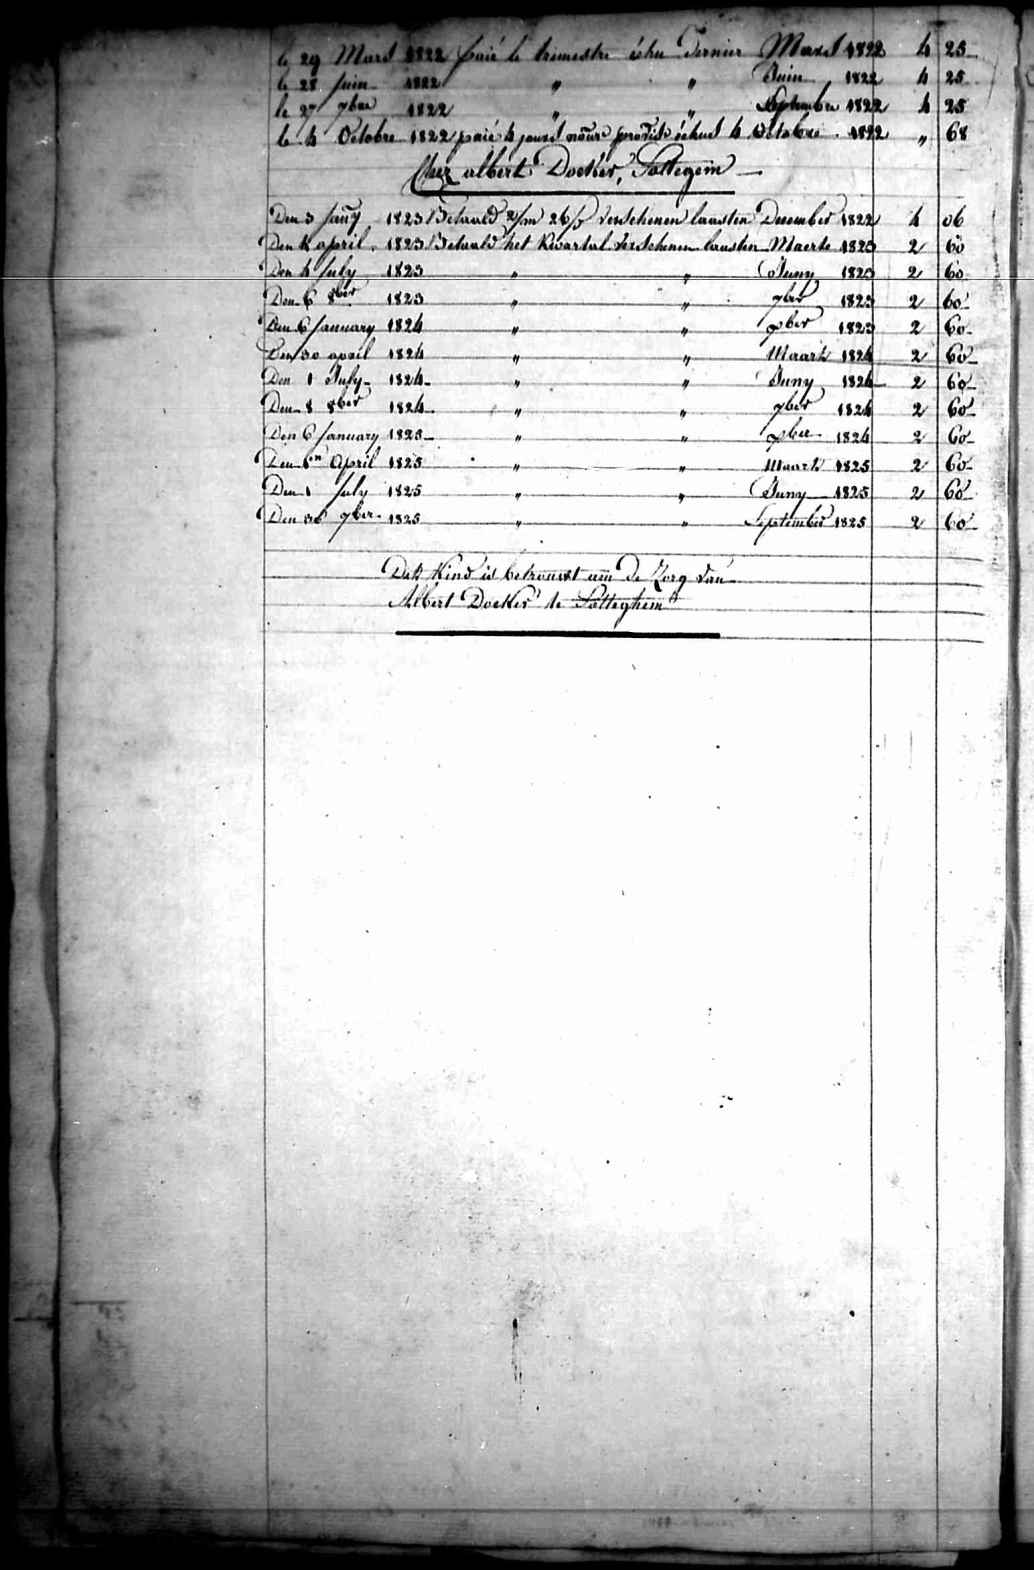 le 29 Mars 1822 paié le trimestre échu Dernier Mars 1822 4 25
le 28 Juin 1822 " " Juin 1822 4 25
le 27 7bre 1822 " " Septembre 1822 4 25
le 4 Octobre 1822 paié 4 jours échus 4 Octobre 1822 " 68
Chez albert Docker, Sottegem
Den 3 Jany 1823 Betaald 2/m 26/j verschenen laasten December 1822 4 06
Den 4 april 1823 Betaald het Kwartal verschenen laasten Maerte 1823 2 60
Den 4 July 1823 " " Juny 1823 2 60
Den 6 8ber 1823 " " 7ber 1823 2 60
Den 6 January 1824 " " xber 1823 2 60
Den 30 april 1824 " " Maart 1824 2 60
Den 1 July 1824 " " Juny 1824 2 60
Den 8 8ber 1824 " " 7ber 1824 2 60
Den 6 January 1825 " " xber 1824 2 60
Den april 1825 " " Maart 1825 2 60
Den 1 July 1825 " " Juny 1825 2 60
Den 30 7ber 1825 " " September 1825 2 60
Dit Kind is betrouwt aen De Zorg van
Albert Docker te Sotteghem